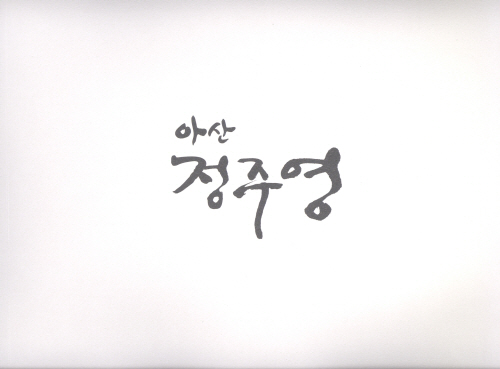 아산
정주영